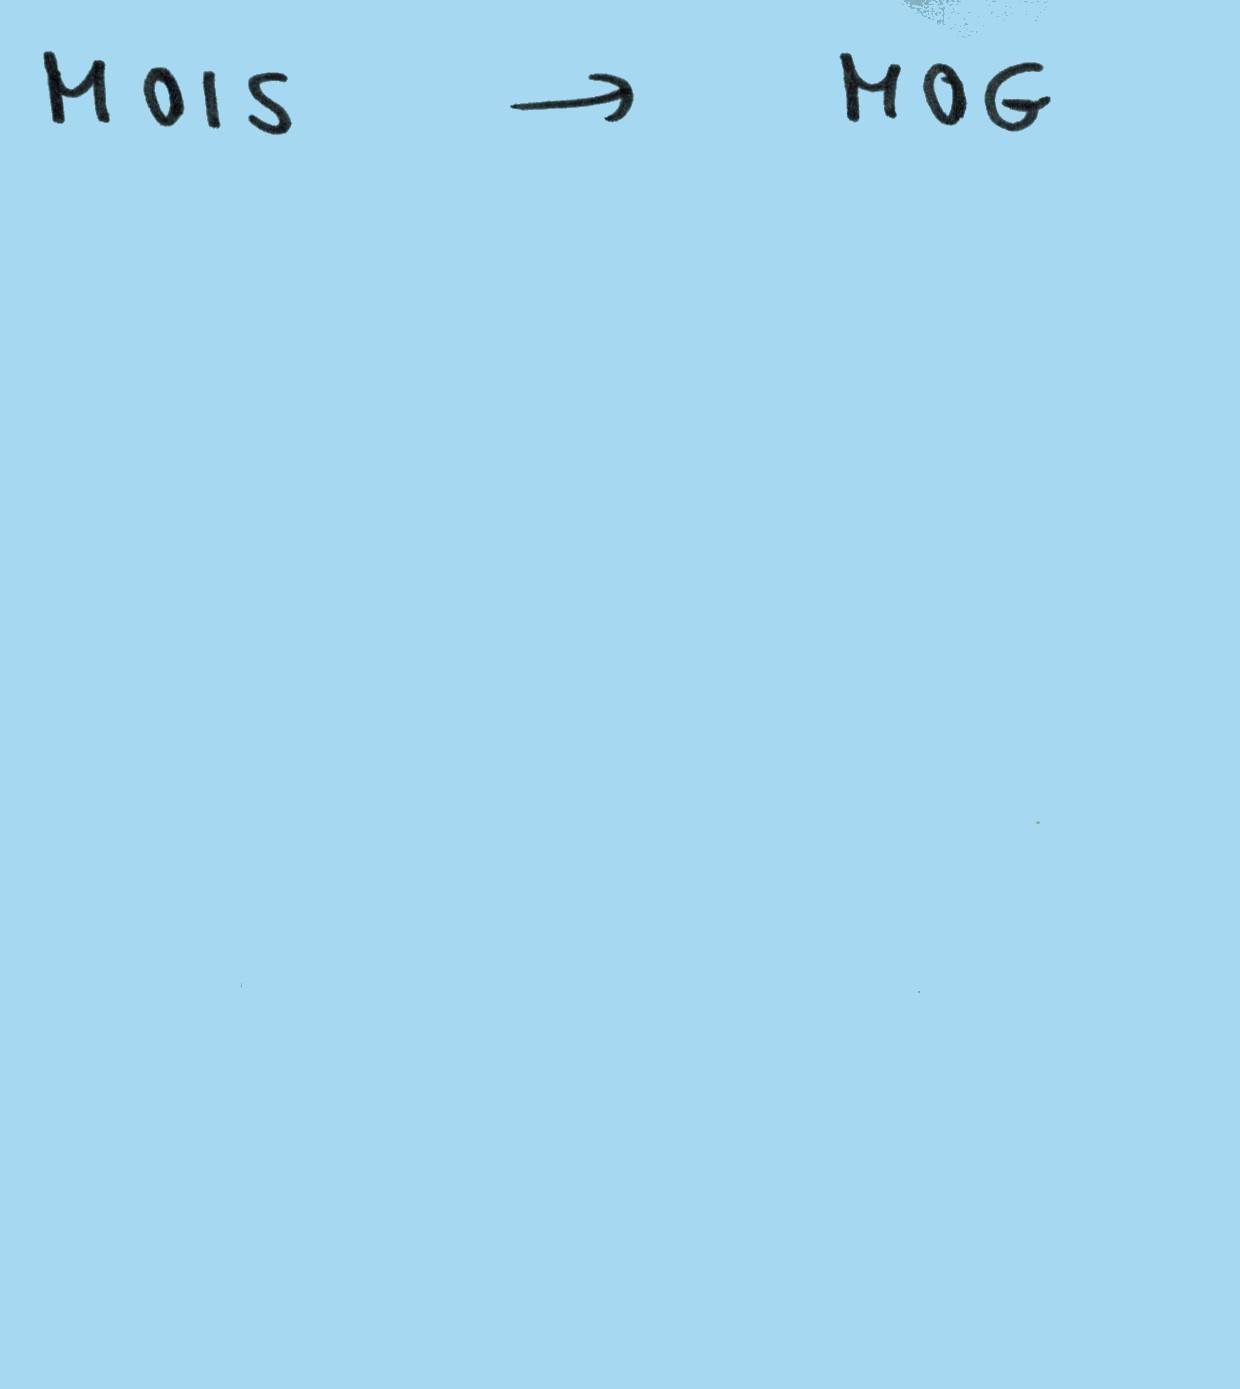 MOIS → MOG